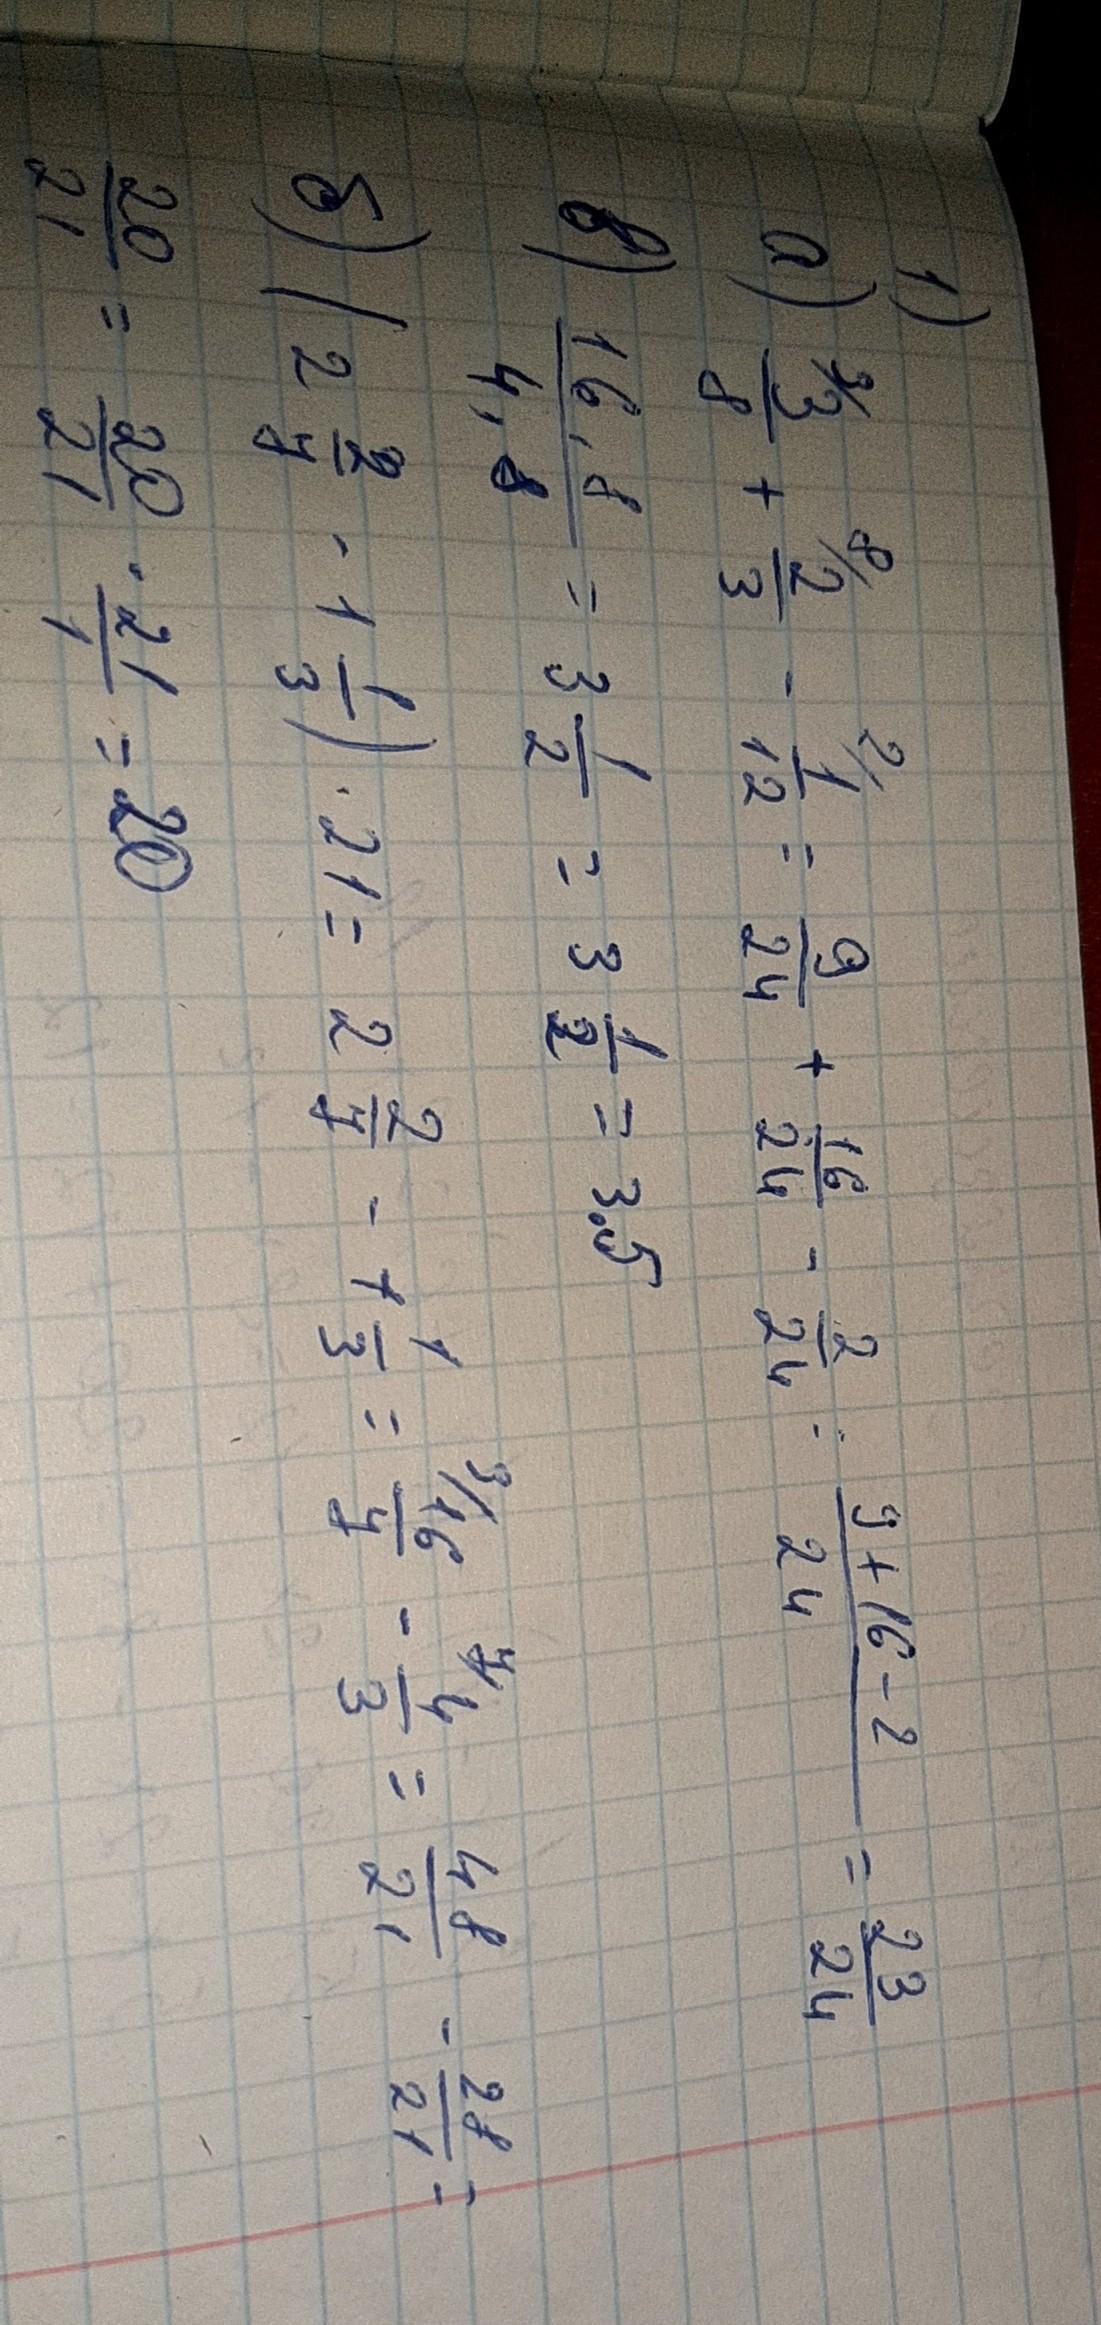 1)
а) ³⁄ 3/8 + ⁸⁄ 2/3 - ²⁄ 1/12 = 9/24 + 16/24 - 2/24 = (9+16-2)/24 = 23/24
в) 16,8/4,8 = 3 1/2 = 3 1/2 = 3,5
б) (2 2/7 - 1 1/3) · 21 = 2 2/7 - 1 1/3 = ³⁄ 16/7 - ⁷⁄ 4/3 = 48/21 - 28/21 =
20/21 = 20/21 · 21/1 = 20